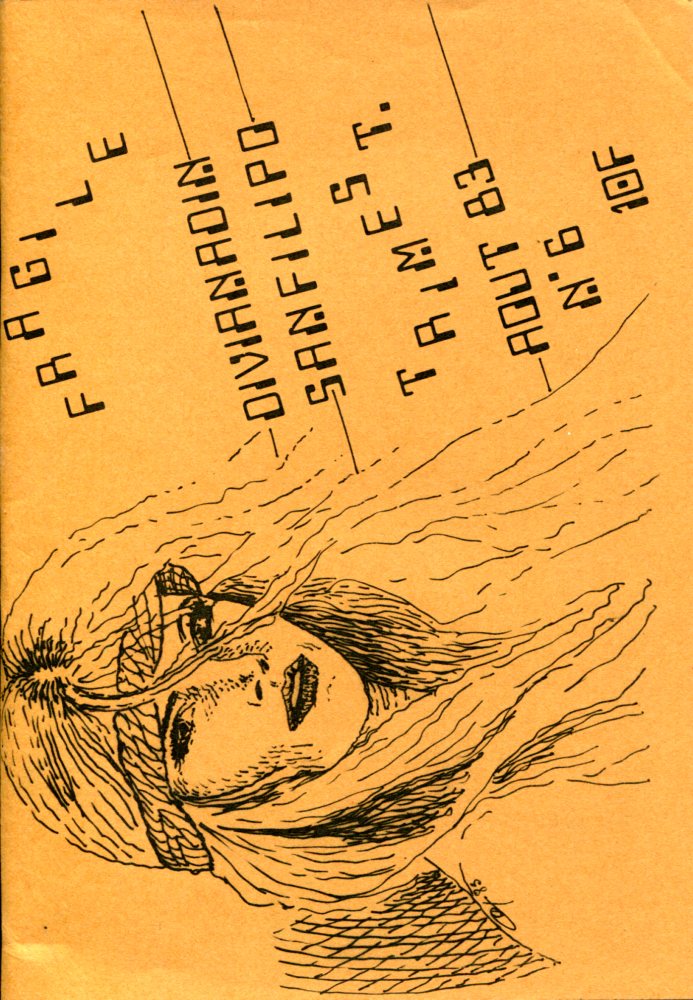 FRAGILE
DIVIANADIN
SANFILIPO
TRIMEST.
AOUT 83
N°6
10F
83